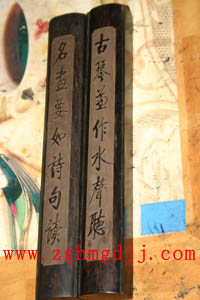 古琴兼作水聲聽
名画要如詩句讀
www.zghmgdjj.com